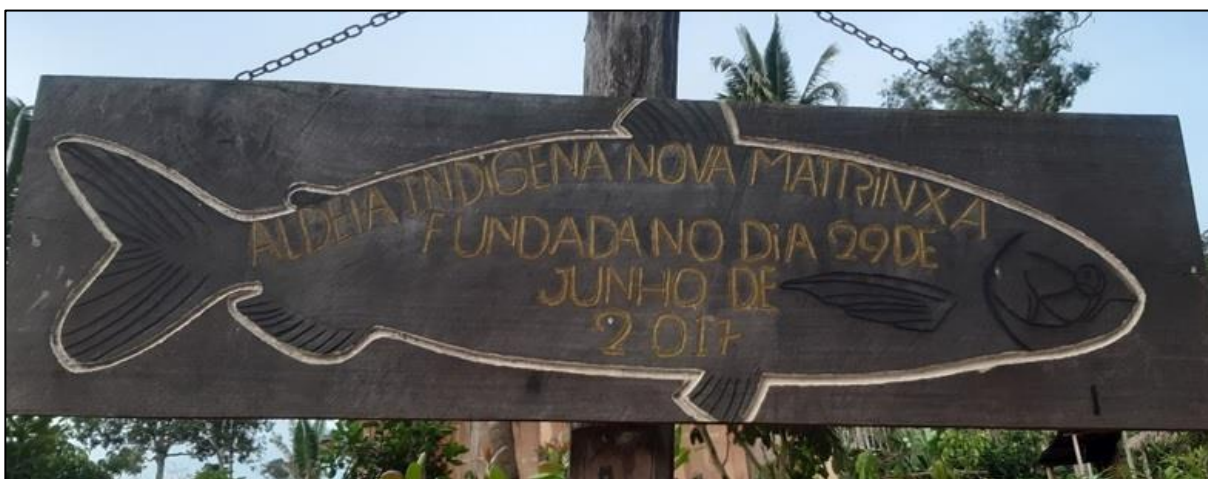 ALDEIA INDiGENA NOVA MATRINXA
FUNDADA NO DiA 29 DE
JUNHO DE
2017